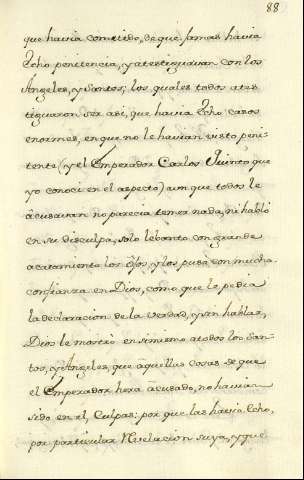 88
que havia cometido, de que jamas havia
Echo penitencia, y atestiguavan con los
Angeles, y Santos; los quales todos ates
tiguaron ser asi, que havia Echo casos
enormes, en que no le havian visto peni-
tente (y el Emperador Carlos Quinto que
yo conoci en el aspecto) aunque todos le
acusavan no parecia temer nada, ni habló
en su disculpa, solo lebantó con grande
acatamiento los ojos, y los puso con mucha
confianza en Dios, como que le pedia
la declaracion de la verdad, y sin hablar,
Dios le mostró en si mismo atodos los San-
tos, y Angeles, que aquellas cosas de que
el Emperador hera acusado, no havian
sido en el, Culpas: por que las havia Echo,
por particular Revelacion suya, y que